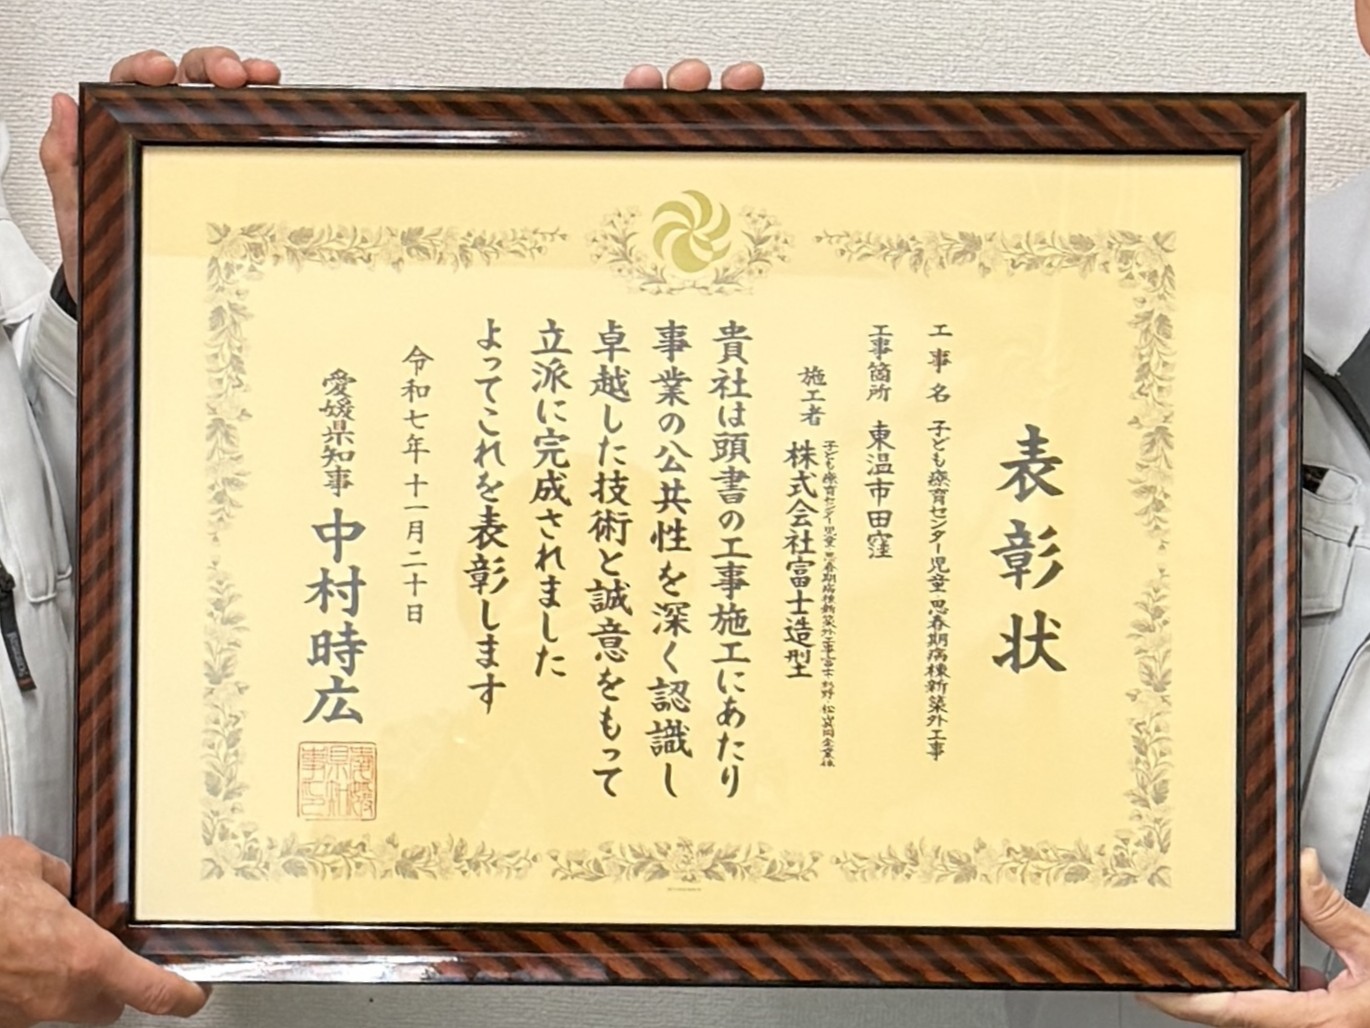 表彰状
工事名 子ども療育センター児童・思春期病棟新築外工事
工事箇所 東温市田窪
子ども療育センター児童・思春期病棟新築外工事富士・杉野・松岩同企業体
施工者 株式会社富士造型
貴社は頭書の工事施工にあたり
事業の公共性を深く認識し
卓越した技術と誠意をもって
立派に完成されました
よってこれを表彰します
令和七年十一月二十日
愛媛県知事 中村時広
愛媛県知事印